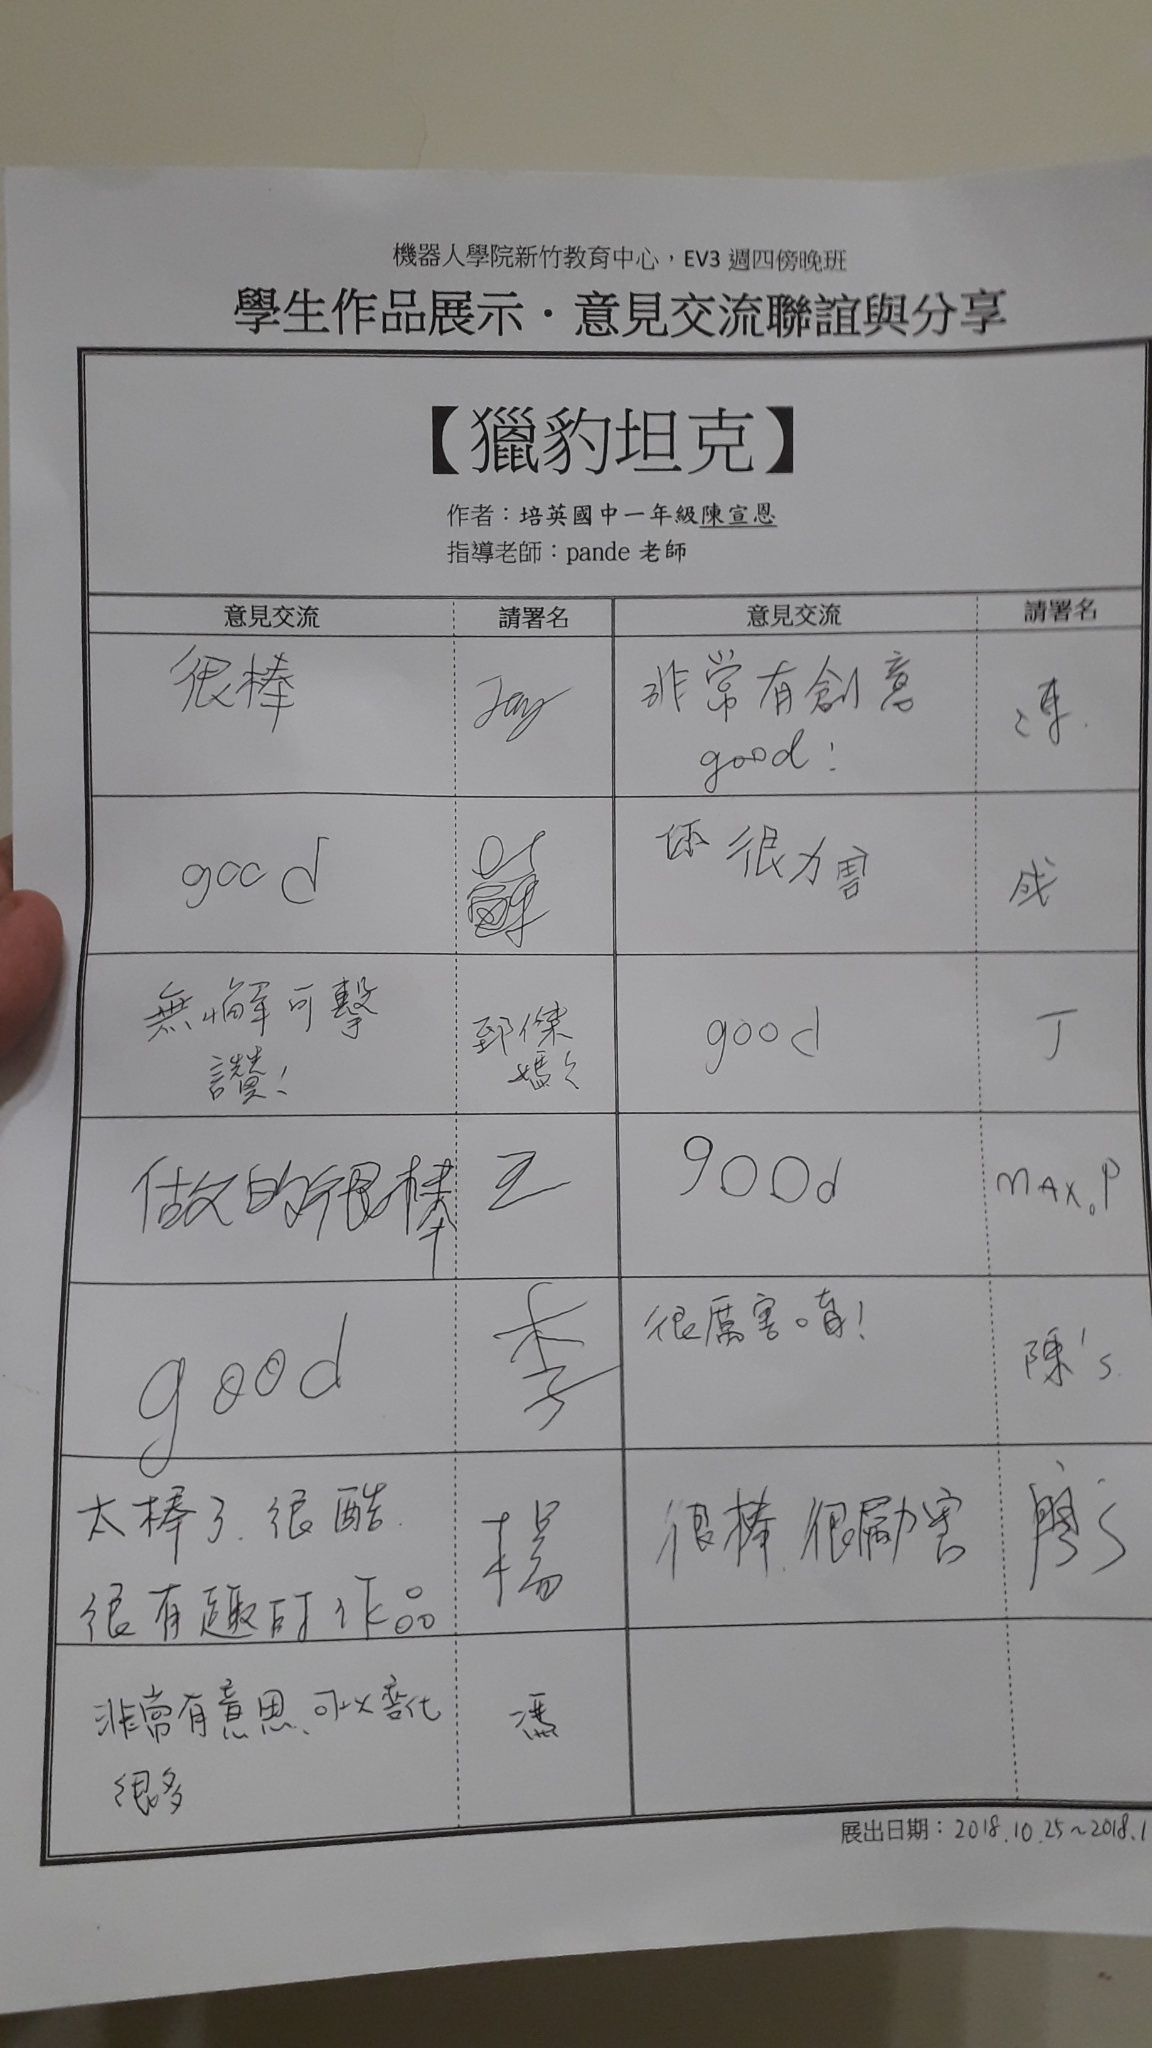 機器人學院新竹教育中心，EV3 週四傍晚班
學生作品展示．意見交流聯誼與分享
【獵豹坦克】
作者：培英國中一年級陳宣恩
指導老師：pande 老師
意見交流 請署名 意見交流 請署名
很棒 Jay
非常有創意
good！ 陳
good
很力害 成
無懈可擊
讚！
傑
媽
good 丁
做的很棒 王
good MAX.P
good 李
很厲害唷！ 陳's
太棒了.很酷.
很有趣的作品 楊
很棒.很勵害 廖's
非常有意思、可以变化
很多 馮
展出日期：2018.10.25～2018.1